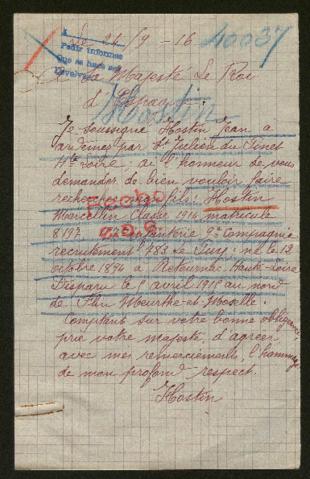 Le 24/9-16
40037
A
Pedir informes
Que se hace con
A Sa Majesté Le Roi
d'Espagne
Hostin
Je soussigné Hostin Jean a
par St Julien du Pinet
Hte Loire ai l'honneur de vous
demander de bien vouloir faire
rechercher mon fils: Hostin
Marcellin Classe 1914 matricule
8197 Infanterie 9e Compagnie
recrutement 983 Le Puy: né le 12
octobre 1894 à Retournac Haute Loire
Disparu le 5 avril 1915 au nord
de Flirey Meurthe-et-Moselle.
Comptant sur votre bonne obligeance,
prie votre majesté, d'agréer
avec mes remerciements, l'hommage
de mon profond respect.
Hostin